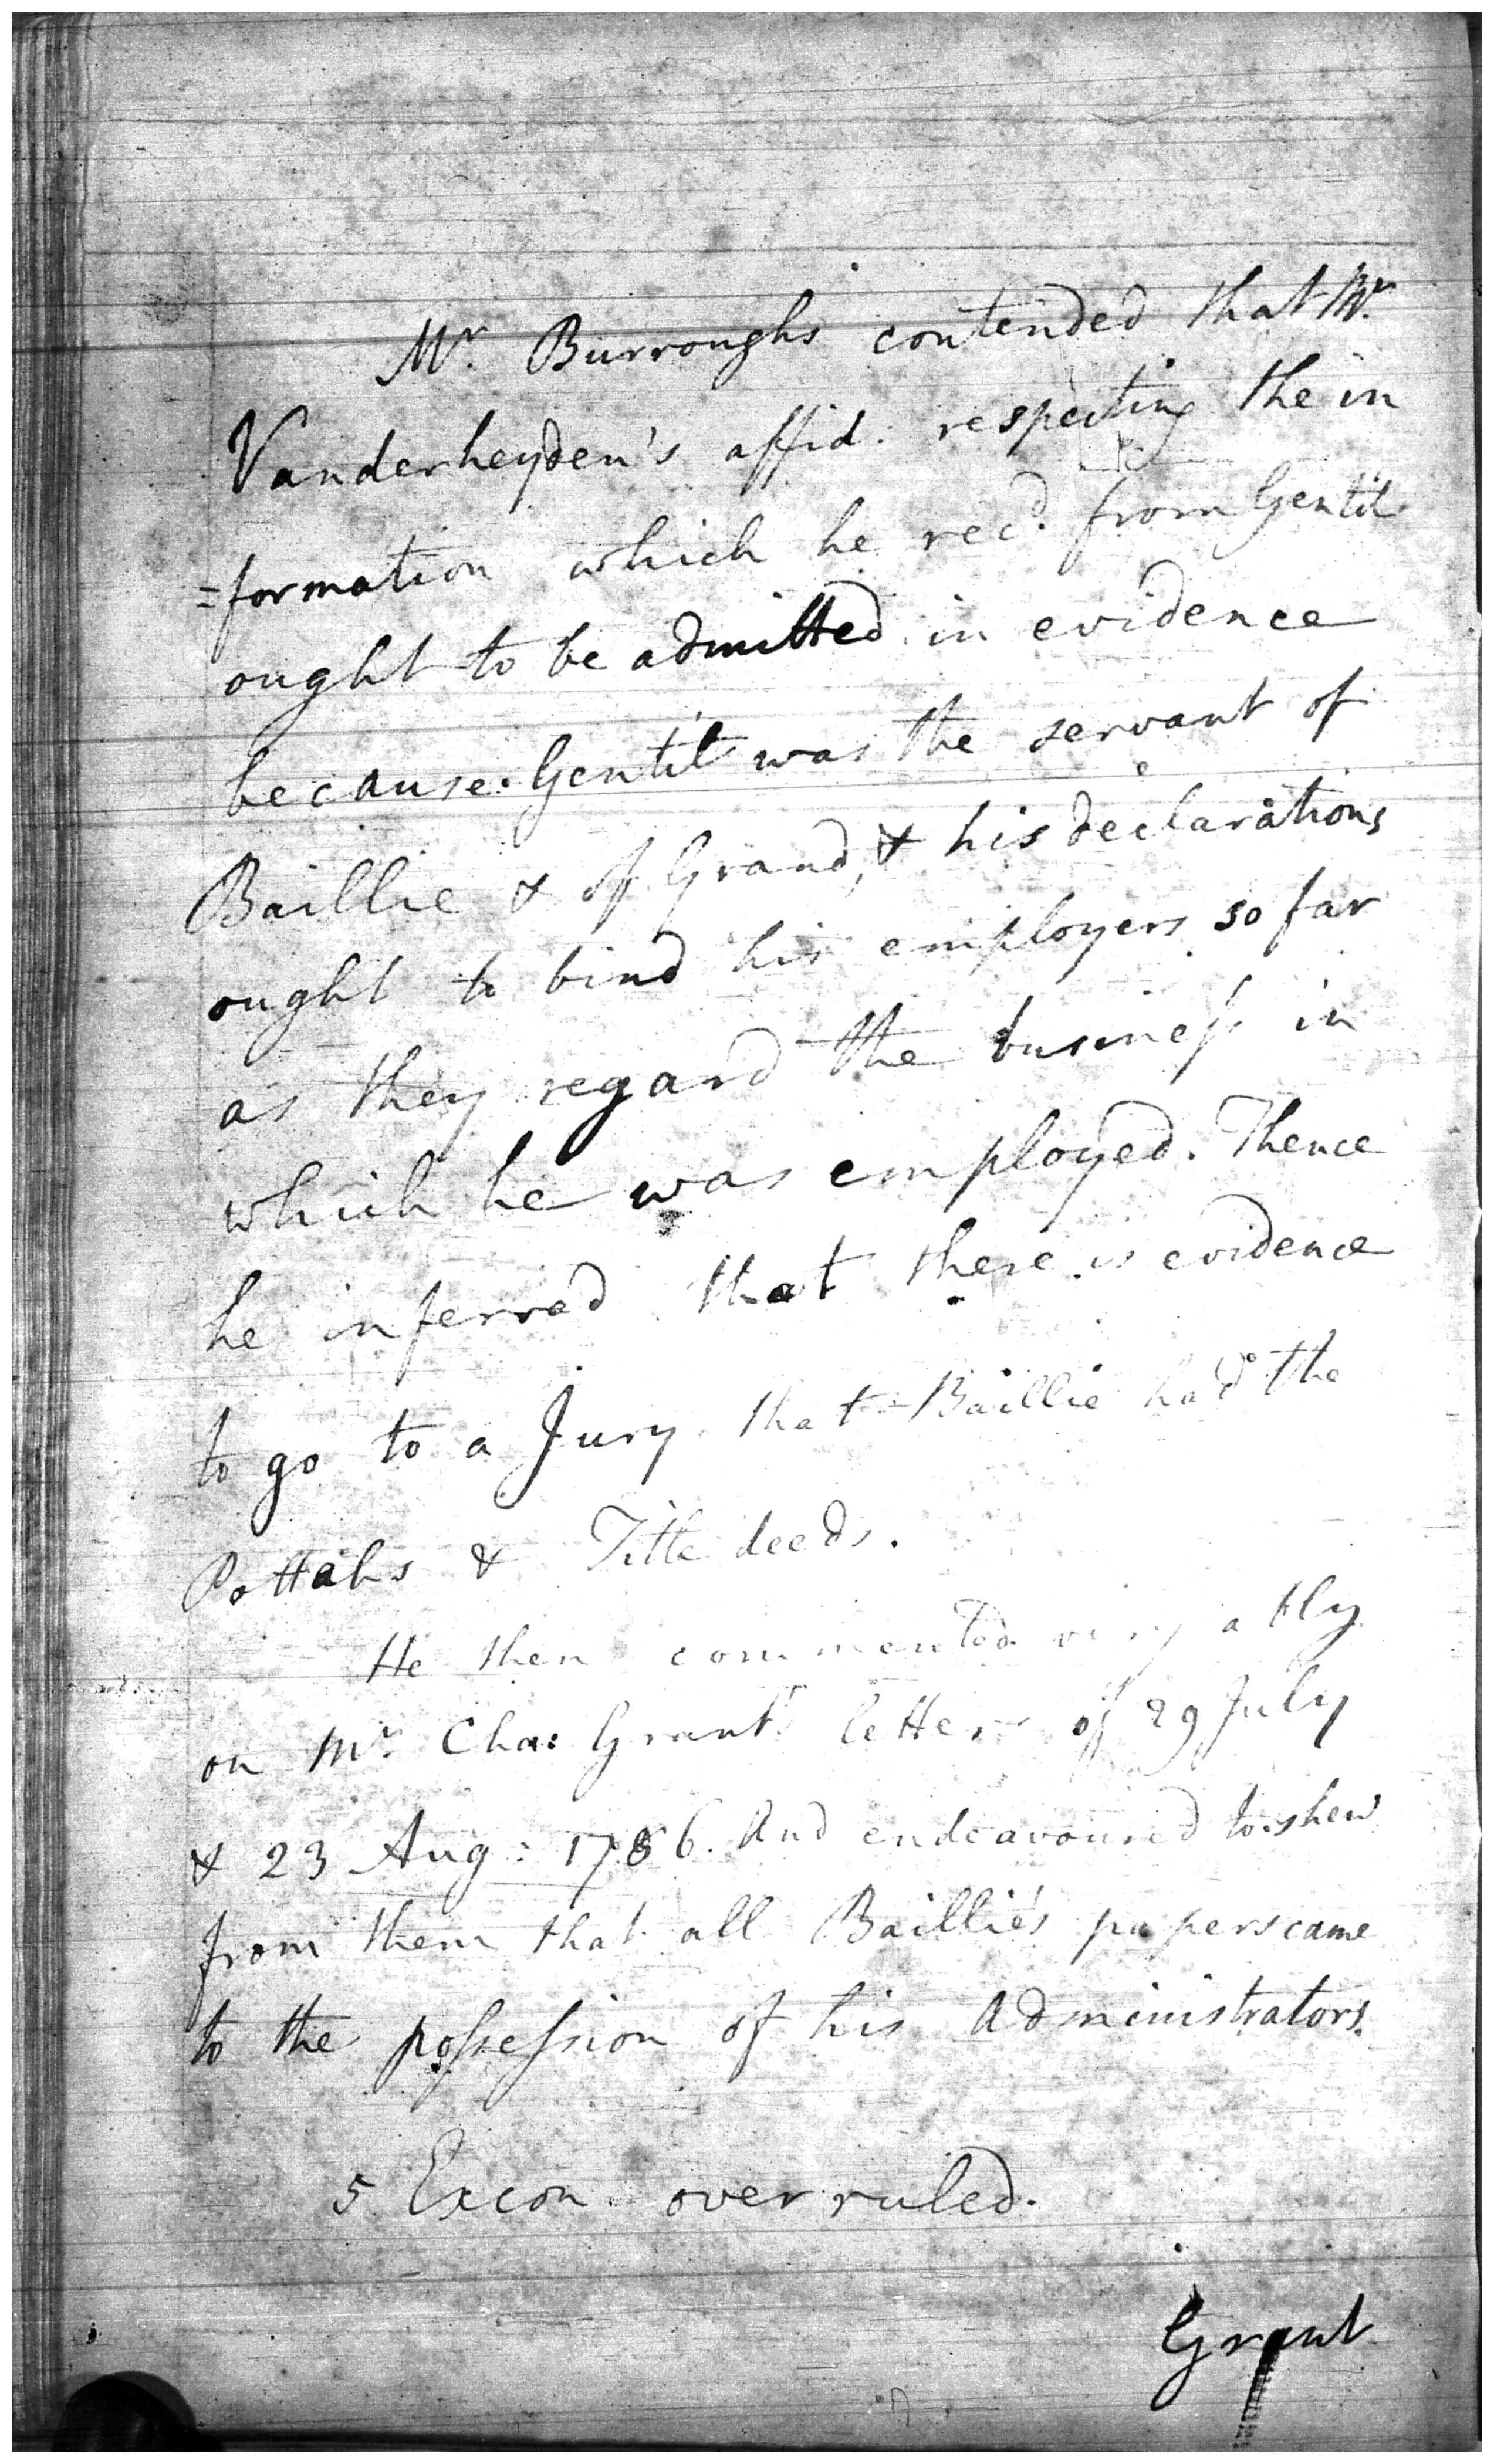 Mr. Burroughs contended that Mr.
Vanderheyden's affid: respecting the in
=formation which he rec'd. from Gentil
ought to be admitted in evidence
because Gentil was the servant of
Baillie & of Grand, & his declarations
ought to bind his employers so far
as they regard the business in
which he was employed. Thence
he inferred that there is evidence
to go to a Jury that Baillie had the
Pottahs & Title deeds.
He then commented very ably
on Mr Cha: Grant's letters of 29 July
& 23 Aug: 1786. And endeavoured to shew
from them that all Baillie's papers came
to the possession of his Administrators.
5 Excon overruled.
Grant